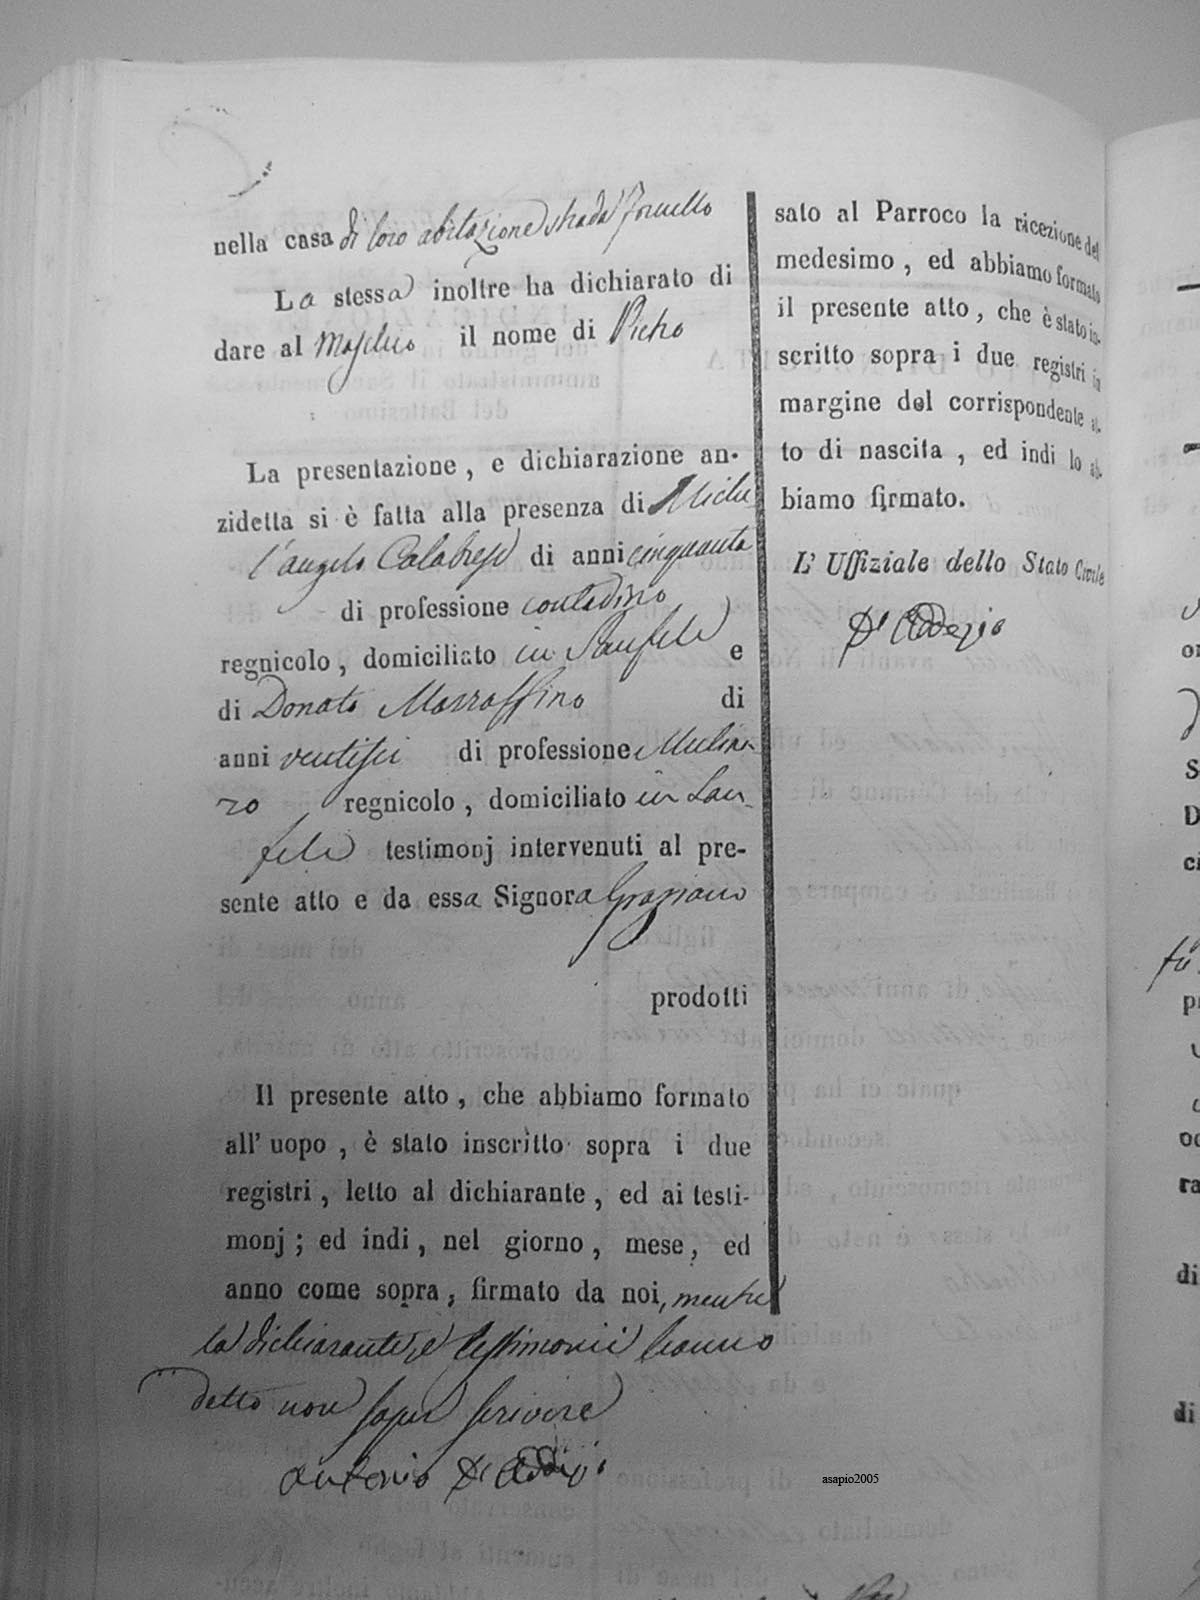 nella casa di loro abitazione strada Fornello
La stessa inoltre ha dichiarato di
dare al Maschio il nome di Pietro
La presentazione, e dichiarazione an-
zidetta si è fatta alla presenza di Miche
l'angelo Calabrese di anni cinquanta
di professione contadino
regnicolo, domiciliato in Sanfele e
di Donato di
anni ventisei di professione Mulina-
ro regnicolo, domiciliato in San-
fele testimonj intervenuti al pre-
sente atto e da essa Signora Graziano
prodotti
Il presente atto, che abbiamo formato
all' uopo, è stato inscritto sopra i due
registri, letto al dichiarante, ed ai testi-
monj; ed indi, nel giorno, mese, ed
anno come sopra, firmato da noi, mentre
la dichiarante, e testimonii hanno
detto non saper scrivere
Antonio
sato al Parroco la ricezione del
medesimo, ed abbiamo formato
il presente atto, che è stato in-
scritto sopra i due registri in
margine del corrispondente at-
to di nascita, ed indi lo ab-
biamo firmato.
L' Uffiziale dello Stato Civile
asapio2005